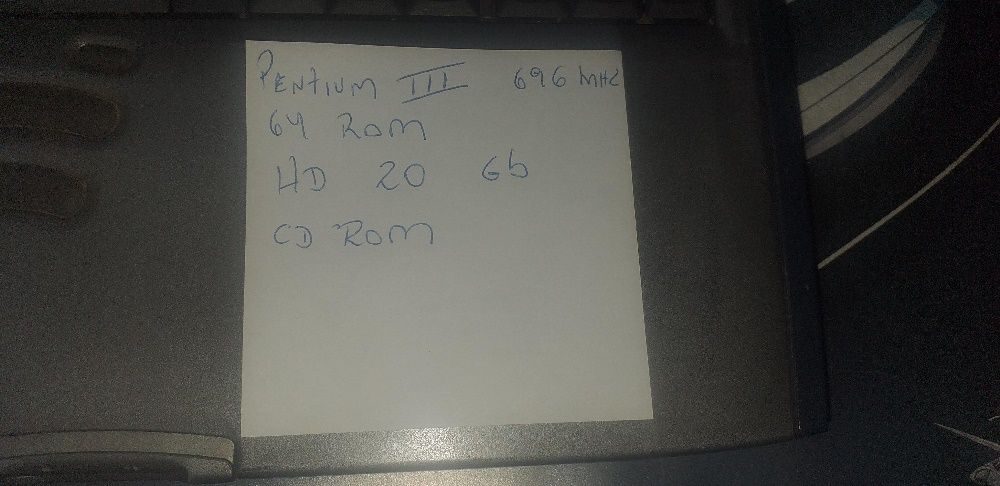 PENTIUM III 696 MHZ
64 ROM
HD 20 Gb
CD ROM